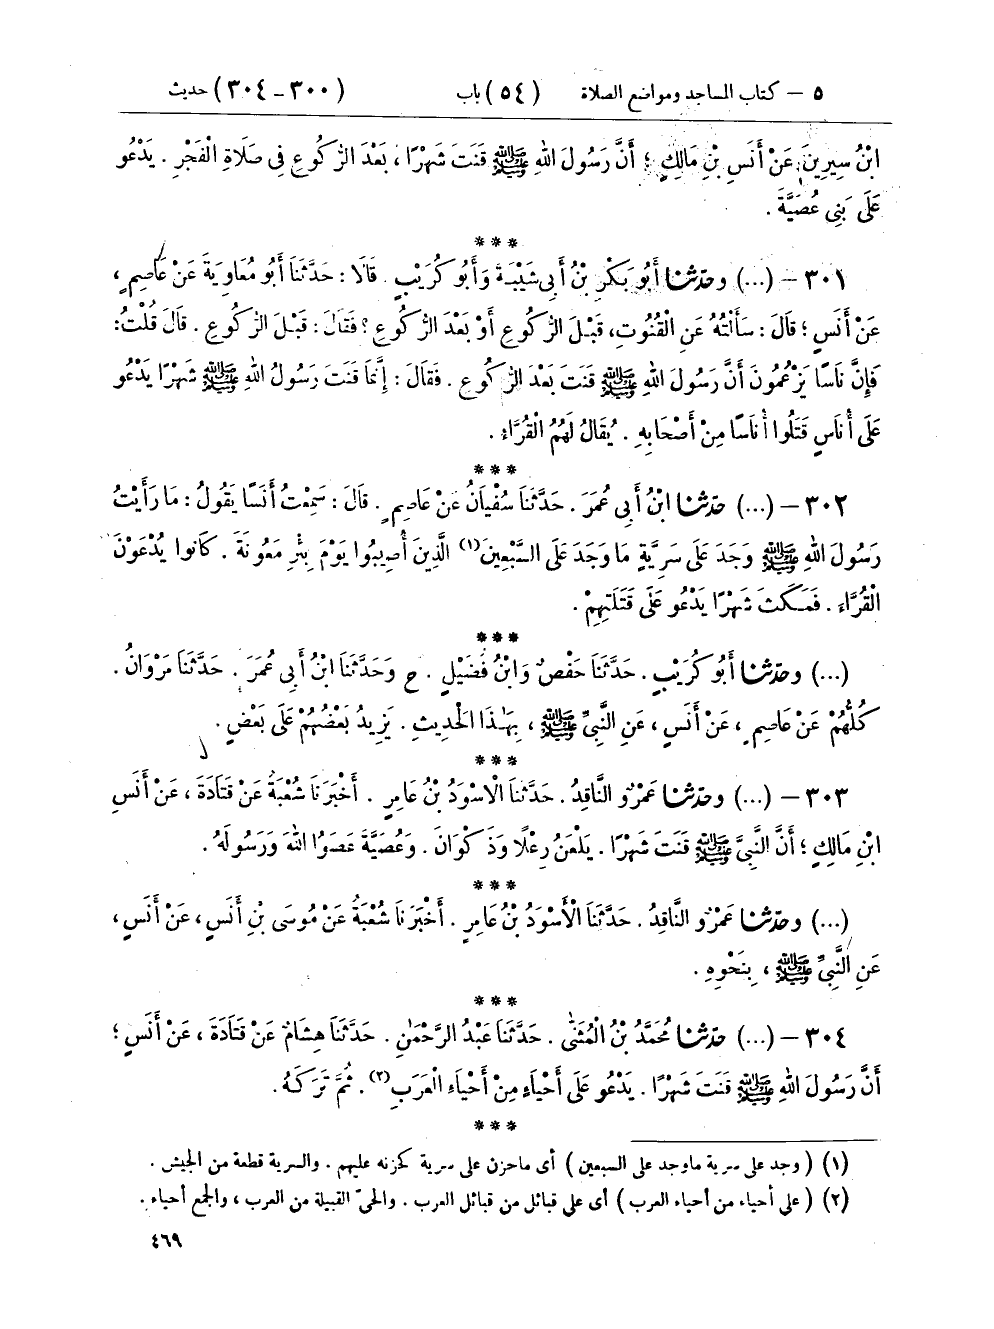 ٥ – كتاب المساجد ومواضع الصلاة (٥٤) باب (٣٠٠ – ٣٠٤) حديث
ابْنُ سِيرِينَ عَنْ أَنَسِ بْنِ مَالِكٍ ؛ أَنَّ رَسُولَ اللهِ ﷺ قَنَتَ شَهْرًا ، بَعْدَ الرُّكُوعِ فِي صَلَاةِ الْفَجْرِ . يَدْعُو
عَلَى بَنِي عُصَيَّةَ .
***
٣٠١ – (...) وحدّثنا أَبُو بَكْرِ بْنُ أَبِي شَيْبَةَ وَأَبُو كُرَيْبٍ . قَالَا : حَدَّثَنَا أَبُو مُعَاوِيَةَ عَنْ عَاصِمٍ ،
عَنْ أَنَسٍ ؛ قَالَ : سَأَلْتُهُ عَنِ الْقُنُوتِ، قَبْلَ الرُّكُوعِ أَوْ بَعْدَ الرُّكُوعِ ؟ فَقَالَ : قَبْلَ الرُّكُوعِ . قَالَ قُلْتُ :
فَإِنَّ نَاسًا يَزْعُمُونَ أَنَّ رَسُولَ اللهِ ﷺ قَنَتَ بَعْدَ الرُّكُوعِ . فَقَالَ : إِنَّمَا قَنَتَ رَسُولُ اللهِ ﷺ شَهْرًا يَدْعُو
عَلَى أُنَاسٍ قَتَلُوا أُنَاسًا مِنْ أَصْحَابِهِ . يُقَالُ لَهُمُ الْقُرَّاءِ .
***
٣٠٢ – (...) حدّثنا ابْنُ أَبِي عُمَرَ . حَدَّثَنَا سُفْيَانُ عَنْ عَاصِمٍ . قَالَ : سَمِعْتُ أَنَسًا يَقُولُ : مَا رَأَيْتُ
رَسُولَ اللهِ ﷺ وَجَدَ عَلَى سَرِيَّةٍ مَا وَجَدَ عَلَى السَّبْعِينَ(١) الَّذِينَ أُصِيبُوا يَوْمَ بِئْرِ مَعُونَةَ . كَانُوا يُدْعَوْنَ
الْقُرَّاءَ . فَمَكَثَ شَهْرًا يَدْعُو عَلَى قَتَلَتِهِمْ .
***
(...) وحدّثنا أَبُو كُرَيْبٍ . حَدَّثَنَا حَفْصٌ وَابْنُ فُضَيْلٍ . ح وَحَدَّثَنَا ابْنُ أَبِي عُمَرَ . حَدَّثَنَا مَرْوَانُ .
كُلُّهُمْ عَنْ عَاصِمٍ ، عَنْ أَنَسٍ ، عَنِ النَّبِيِّ ﷺ ، بِهَٰذَا الْحَدِيثِ . يَزِيدُ بَعْضُهُمْ عَلَى بَعْضٍ .
***
٣٠٣ – (...) وحدّثنا عَمْرٌو النَّاقِدُ . حَدَّثَنَا الْأَسْوَدُ بْنُ عَامِرٍ . أَخْبَرَنَا شُعْبَةُ عَنْ قَتَادَةَ ، عَنْ أَنَسِ
ابْنِ مَالِكٍ ؛ أَنَّ النَّبِيَّ ﷺ قَنَتَ شَهْرًا . يَلْعَنُ رِعْلًا وَذَكْوَانَ . وَعُصَيَّةَ عَصَوُا اللهَ وَرَسُولَهُ .
***
(...) وحدّثنا عَمْرٌو النَّاقِدُ . حَدَّثَنَا الْأَسْوَدُ بْنُ عَامِرٍ . أَخْبَرَنَا شُعْبَةُ عَنْ مُوسَى بْنِ أَنَسٍ ، عَنْ أَنَسٍ ،
عَنِ النَّبِيِّ ﷺ ، بِنَحْوِهِ .
***
٣٠٤ – (...) حدّثنا مُحَمَّدُ بْنُ الْمُثَنَّى . حَدَّثَنَا عَبْدُ الرَّحْمَٰنِ . حَدَّثَنَا هِشَامٌ عَنْ قَتَادَةَ ، عَنْ أَنَسٍ ؛
أَنَّ رَسُولَ اللهِ ﷺ قَنَتَ شَهْرًا . يَدْعُو عَلَى أَحْيَاءٍ مِنْ أَحْيَاءِ الْعَرَبِ(٢) . ثُمَّ تَرَكَهُ .
***
(١) ( وجد على سرية ماوجد على السبعين ) أى ماحزن على سرية كحزنه عليهم . والسرية قطعة من الجيش .
(٢) ( على أحياء من أحياء العرب ) أى على قبائل من قبائل العرب . والحىّ القبيلة من العرب ، والجمع أحياء .
٤٦٩